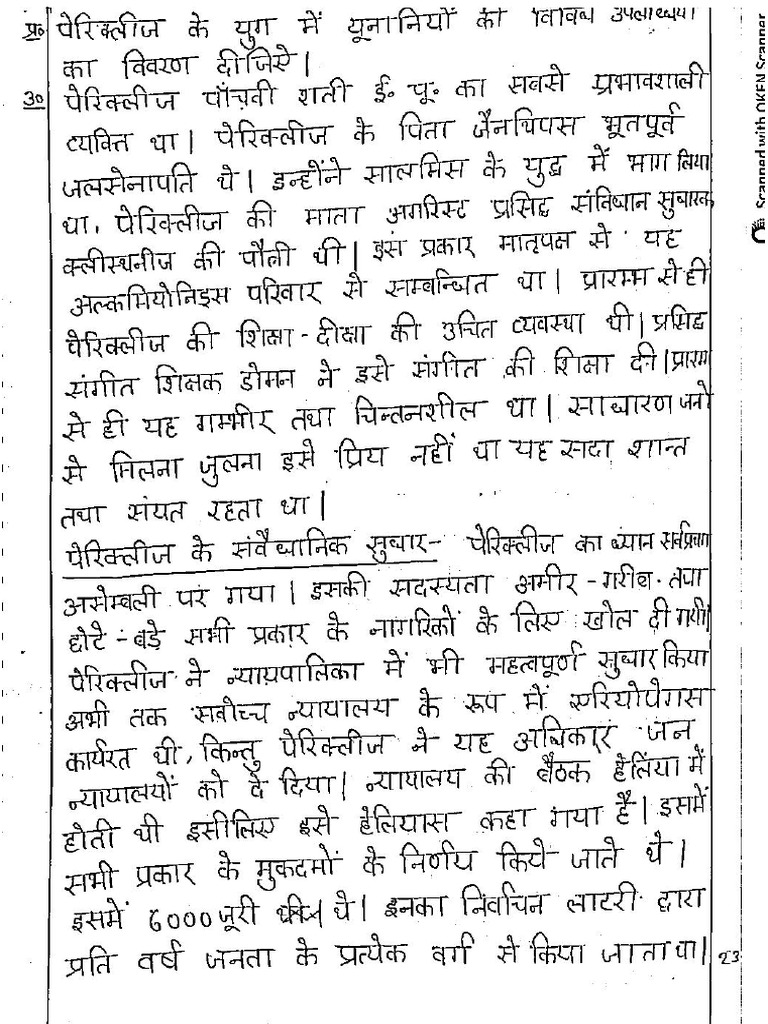 प्र० पेरिक्लीज के युग में यूनानियों की विविध उपलब्धियों
का विवरण दीजिसे।
उ० पेरिक्लीज पाँचवी शती ई. पू. का सबसे प्रभावशाली
व्यक्ति था। पेरिक्लीज के पिता जैनथिपस भूतपूर्व
जलसेनापति थे। इन्होंने सालमिस के युद्ध में भाग लिया
था, पेरिक्लीज की माता अगरिस्ट प्रसिद्ध संविधान सुधारक
क्लीस्थनीज की पौती थी। इस प्रकार मातृपक्ष से यह
अल्कमियोनिड्स परिवार से सम्बन्धित था। प्रारम्भ से ही
पेरिक्लीज की शिक्षा-दीक्षा की उचित व्यवस्था थी। प्रसिद्ध
संगीत शिक्षक डोमन ने इसे संगीत की शिक्षा दी। प्रारम्भ
से ही यह गम्भीर तथा चिन्तनशील था। साधारण जनो
से मिलना जुलना इसे प्रिय नहीं था यह सदा शान्त
तथा संयत रहता था।
पेरिक्लीज के संवैधानिक सुधार- पेरिक्लीज का ध्यान सर्वप्रथम
असेम्बली पर गया। इसकी सदस्यता अमीर-गरीब तथा
छोटे-बड़े सभी प्रकार के नागरिकों के लिए खोल दी गयी।
पेरिक्लीज ने न्यायपालिका में भी महत्वपूर्ण सुधार किया
अभी तक सर्वोच्च न्यायालय के रूप में एरियोपेगस
कार्यरत थी, किन्तु पेरिक्लीज ने यह अधिकार जन
न्यायालयों को दे दिया। न्यायालय की बैठक हेलिया में
होती थी इसीलिए इसे हेलियास कहा गया है। इसमें
सभी प्रकार के मुकदमों के निर्णय किये जाते थे।
इसमें 6000 जूरी थे। इनका निर्वाचन लाटरी द्वारा
प्रति वर्ष जनता के प्रत्येक वर्ग से किया जाता था।
23
Scanned with OKEN Scanner